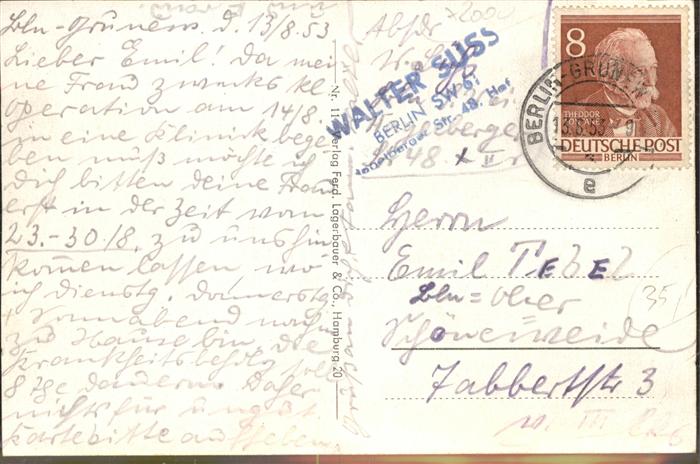 Bln-Grünew. d. 13/8.53
Lieber Emil! Da mei
ne Frau zwecks kl
Operation am 14/8.
in eine Klinik bege
ben muß möchte ich
Dich bitten deine Frau
erst in der Zeit vom
23.-30/8. zu uns hin
kommen lassen wo
ich dienstg. Donnerstg
+ Sonnabend nachm
zu Hause bin, die
Krankheitsbehdlg soll
8 Tge dauern. Daher
nichts für ungut.
Karte bitte aufheben
Nr. 11 Verlag Ferd. Lagerbauer & Co., Hamburg 20
Absdr
W. Süß
WALTER SÜSS
BERLIN SW 61
Str. 48, Hof
8
THEODOR FONTANE
DEUTSCHE POST
BERLIN
BERLIN-GRUNEW
13.8.53
e
Herrn
Emil TEBEL
Bln = Ober
Schöneweide
Tabbertstr 3
35